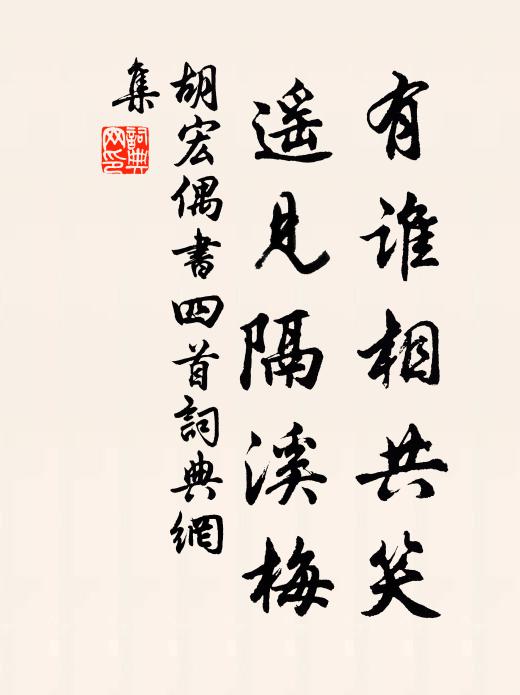 有谁相共笑
遥見隔溪梅
胡宏偶書四首詞典網
集
詞典
网印